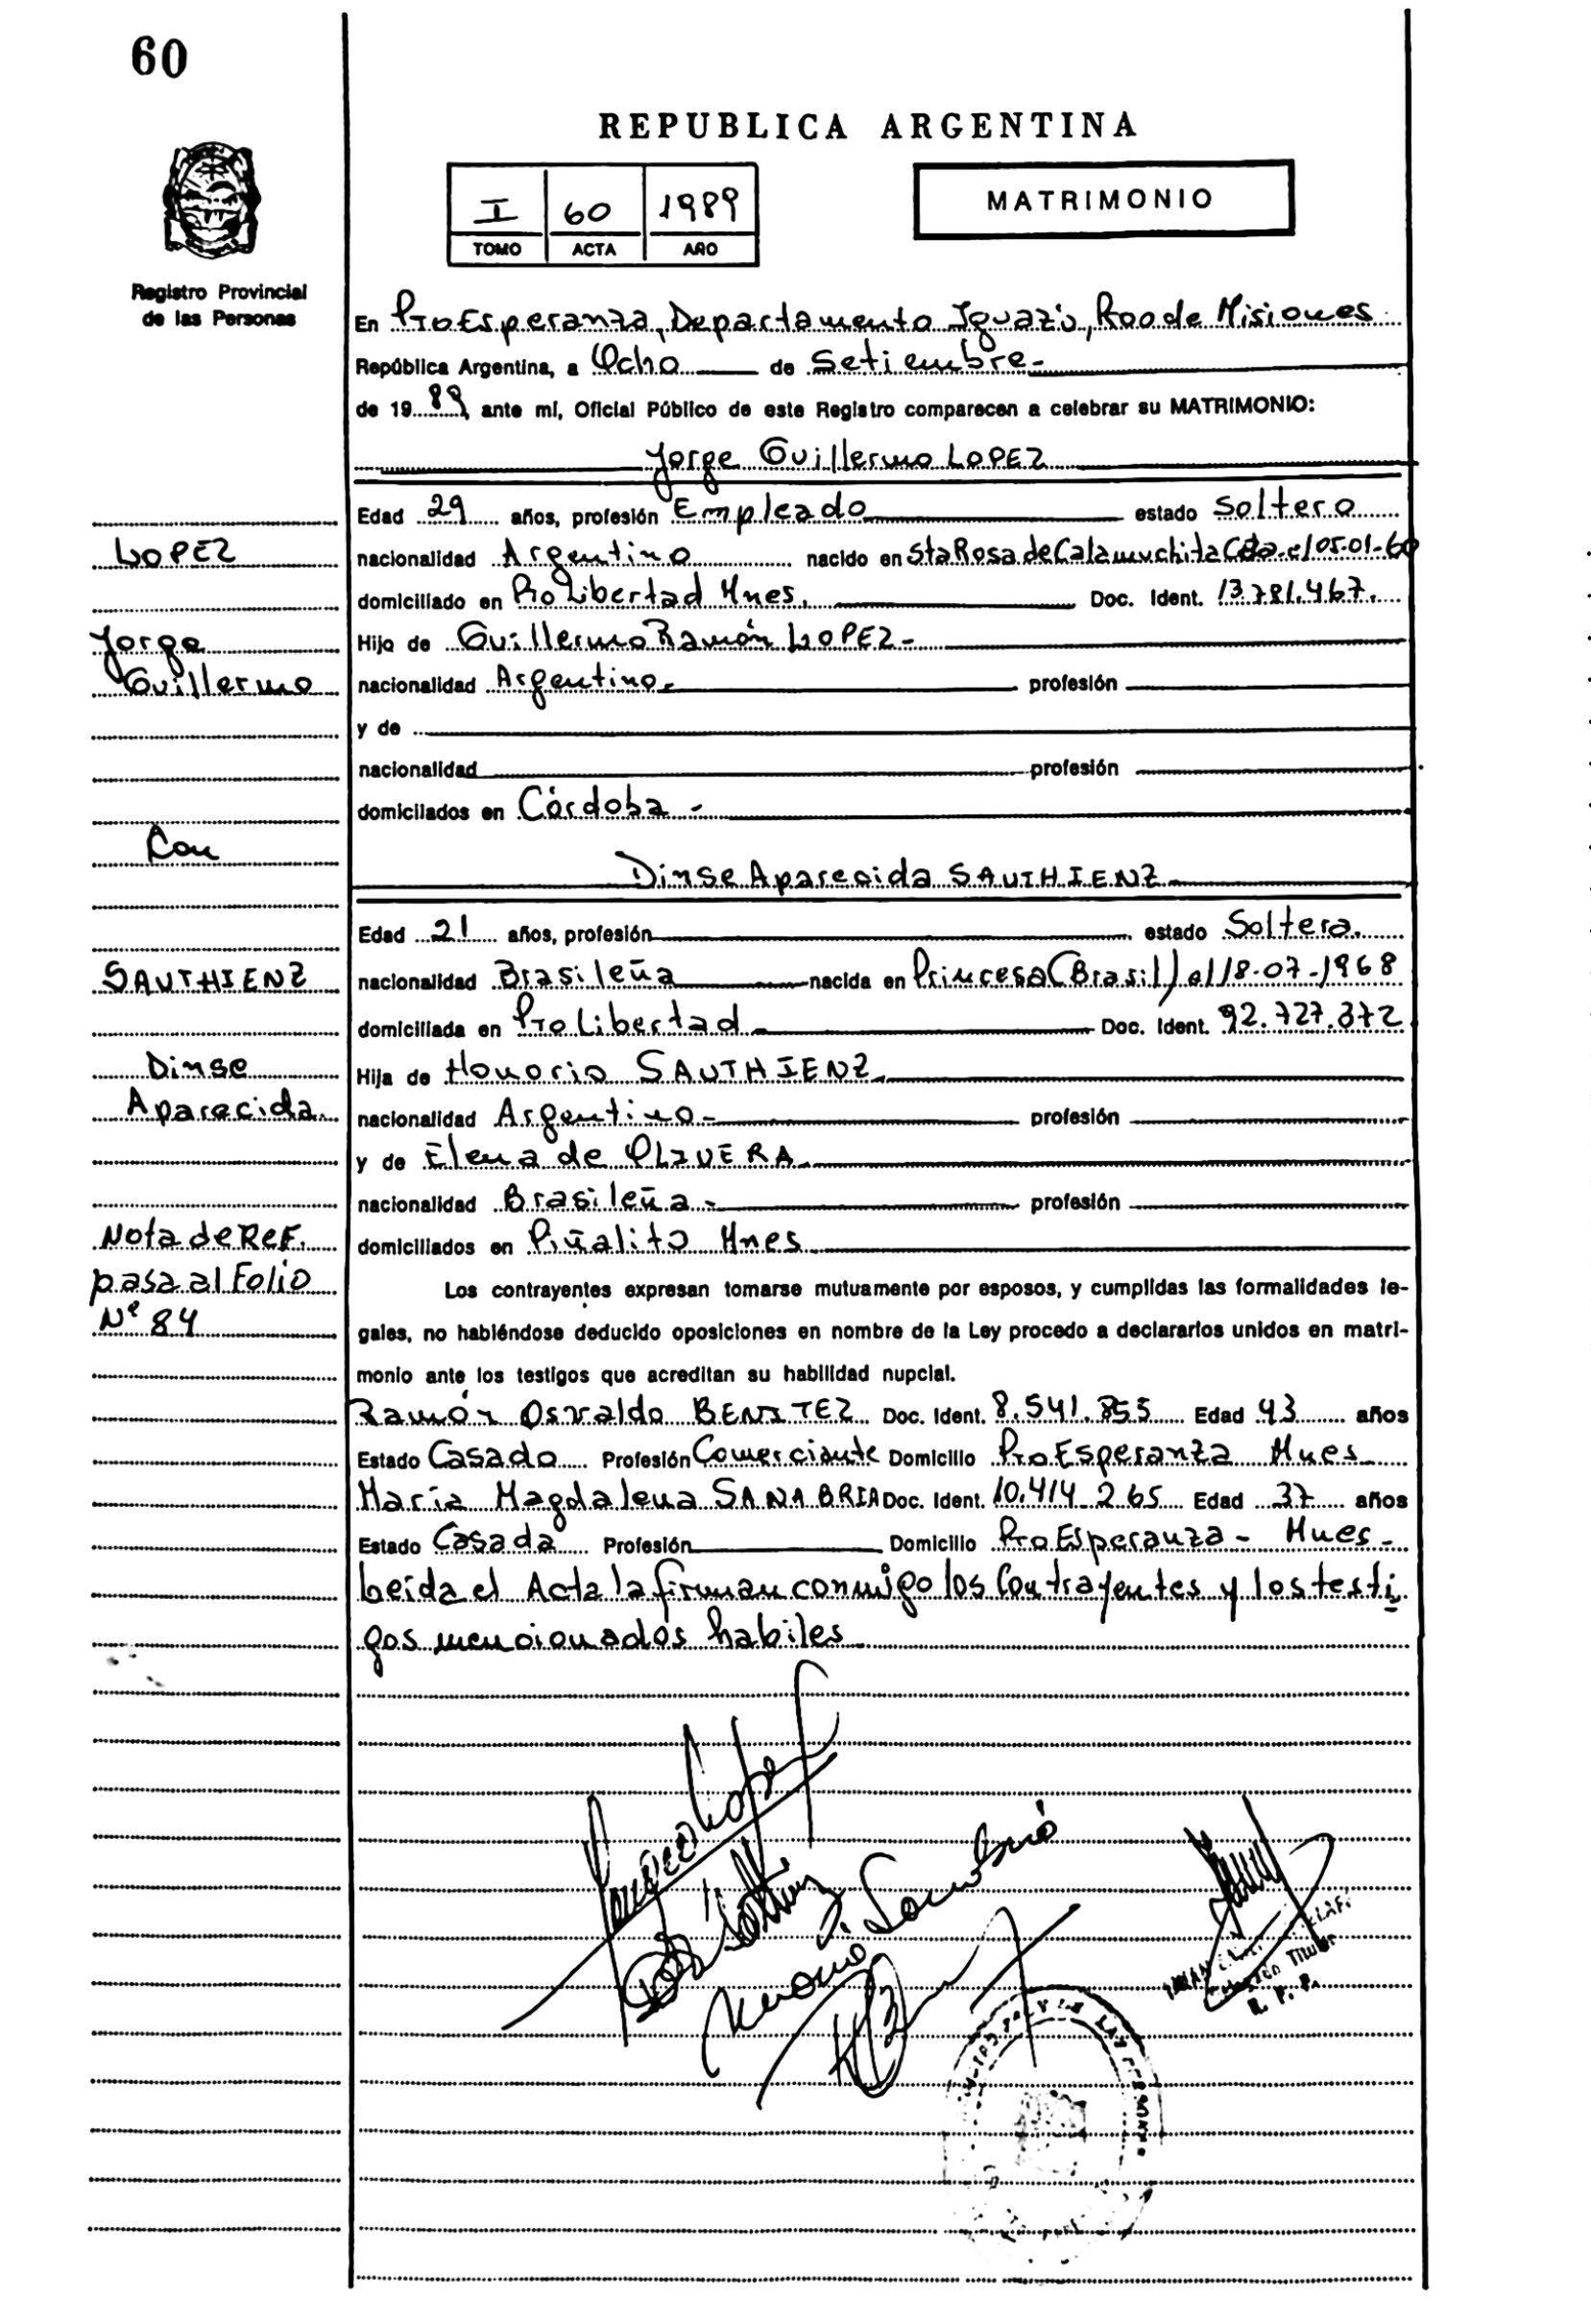 60
REPUBLICA ARGENTINA
I 60 1989
TOMO ACTA AÑO
MATRIMONIO
Registro Provincial
de las Personas
En Pto Esperanza, Departamento Iguazú, Pcode Misiones
República Argentina, a Ocho de Setiembre-
de 1989 ante mí, Oficial Público de este Registro comparecen a celebrar su MATRIMONIO:
Jorge Guillermo LOPEZ
Edad 29 años, profesión Empleado estado Soltero
nacionalidad Argentino nacido en Sta Rosa de Calamuchita Cba. el 05-01-60
domiciliado en Pto Libertad Mnes. Doc. Ident. 13.781.467.
Hijo de Guillermo Ramón LOPEZ-
nacionalidad Argentino. profesión
y de
nacionalidad profesión
domiciliados en Córdoba -
Dinse Aparecida SAUTHIENZ
Edad 21 años, profesión estado Soltera.
nacionalidad Brasileña nacida en Princesa (Brasil) el 18-07-1968
domiciliada en Pto Libertad Doc. Ident. 92.727.372
Hija de Honorio SAUTHIENZ.
nacionalidad Argentino- profesión
y de Elena de OLIVERA.
nacionalidad Brasileña- profesión
domiciliados en Piñalito Mnes
Los contrayentes expresan tomarse mutuamente por esposos, y cumplidas las formalidades le-
gales, no habiéndose deducido oposiciones en nombre de la Ley procedo a declararlos unidos en matri-
monio ante los testigos que acreditan su habilidad nupcial.
Ramón Osvaldo BENITEZ Doc. Ident. 8.541.855 Edad 43 años
Estado Casado Profesión Comerciante Domicilio Pto Esperanza Mnes
María Magdalena SANABRIA Doc. Ident. 10.414.265 Edad 37 años
Estado Casada Profesión Domicilio Pto Esperanza - Mnes -
Leída el Acta la firman conmigo los Contrayentes y los testi
gos mencionados habiles
LOPEZ
Jorge
Guillermo
Con
SAUTHIENZ
Dinse
Aparecida.
Nota de Ref.
pasa al Folio
Nº 84
Titular
R. P. P.